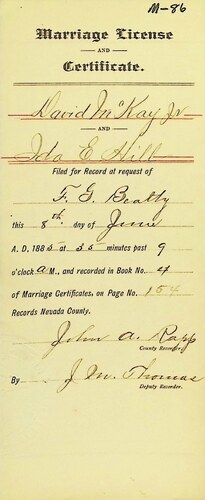 M-86
Marriage License
AND
Certificate.
David McKay Jr
AND
Ida E Hill
Filed for Record at request of
F. G. Beatty
this 8th. day of June
A. D. 1885 at 35 minutes past 9
o'clock A M., and recorded in Book No. 4
of Marriage Certificates, on Page No. 154
Records Nevada County.
John A. Rapp
County Recorder.
By J. M. Thomas
Deputy Recorder.